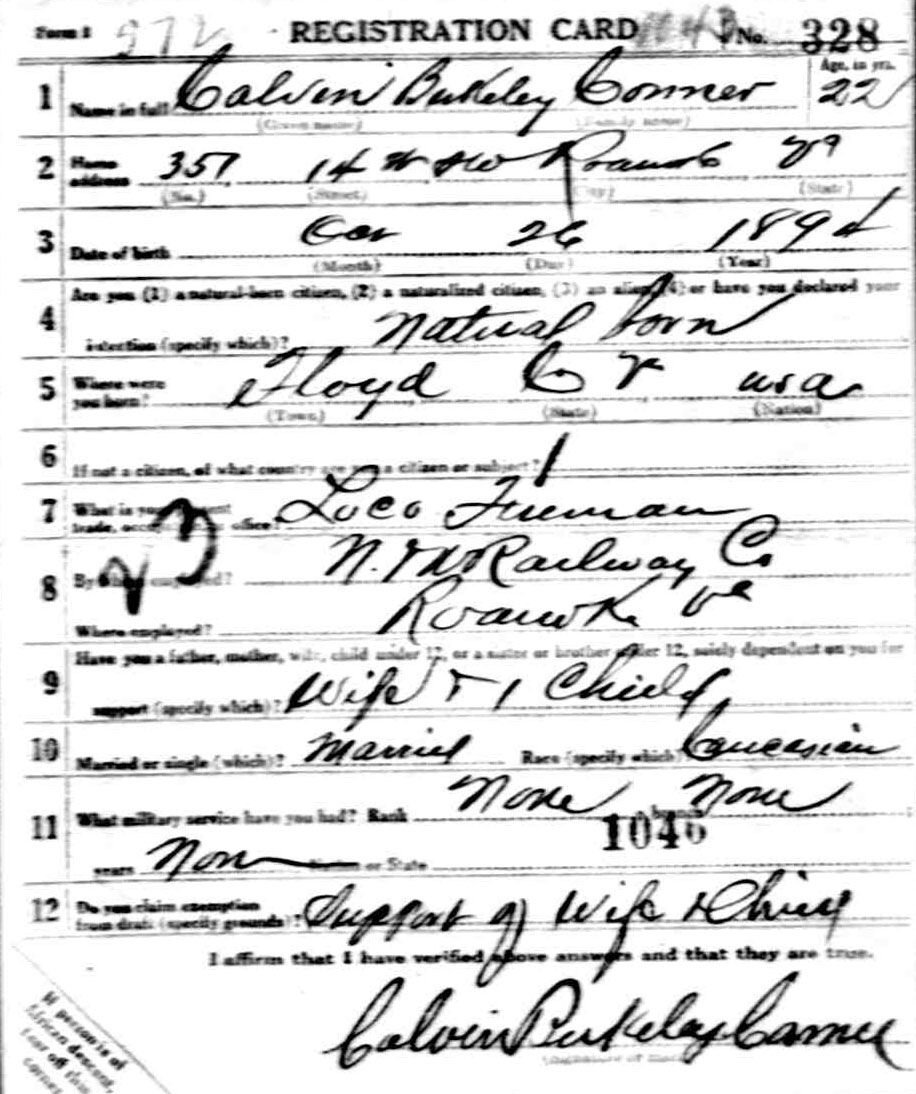 Form 1 972 REGISTRATION CARD No. 328
1 Name in full Calvin Berkeley Conner Age, in yrs. 22
(Given name) (Family name)
2 Home address 357 14th SW Roanoke Va
(No.) (Street) (City) (State)
3 Date of birth 26 1894
(Month) (Day) (Year)
4 Are you (1) a natural-born citizen, (2) a naturalized citizen, (3) an alien, (4) or have you declared your
intention (specify which)? Natural born
5 Where were you born? Floyd Co V usa
(Town) (State) (Nation)
6 If not a citizen, of what country are you a citizen or subject?
7 What is your present trade, occupation, or office? Loco Fireman
23
8 By whom employed? N. & W Railway Co
Where employed? Roanoke Va
9 Have you a father, mother, wife, child under 12, or a sister or brother under 12, solely dependent on you for
support (specify which)? Wife & 1 Child
10 Married or single (which)? Married Race (specify which)? Caucasian
11 What military service have you had? Rank None branch None
1046
years Non Nation or State
12 Do you claim exemption from draft (specify grounds)? Support of Wife & Child
I affirm that I have verified above answers and that they are true.
Calvin Berkeley Conner
(Signature or mark)
If person is of
African descent,
tear off this
corner